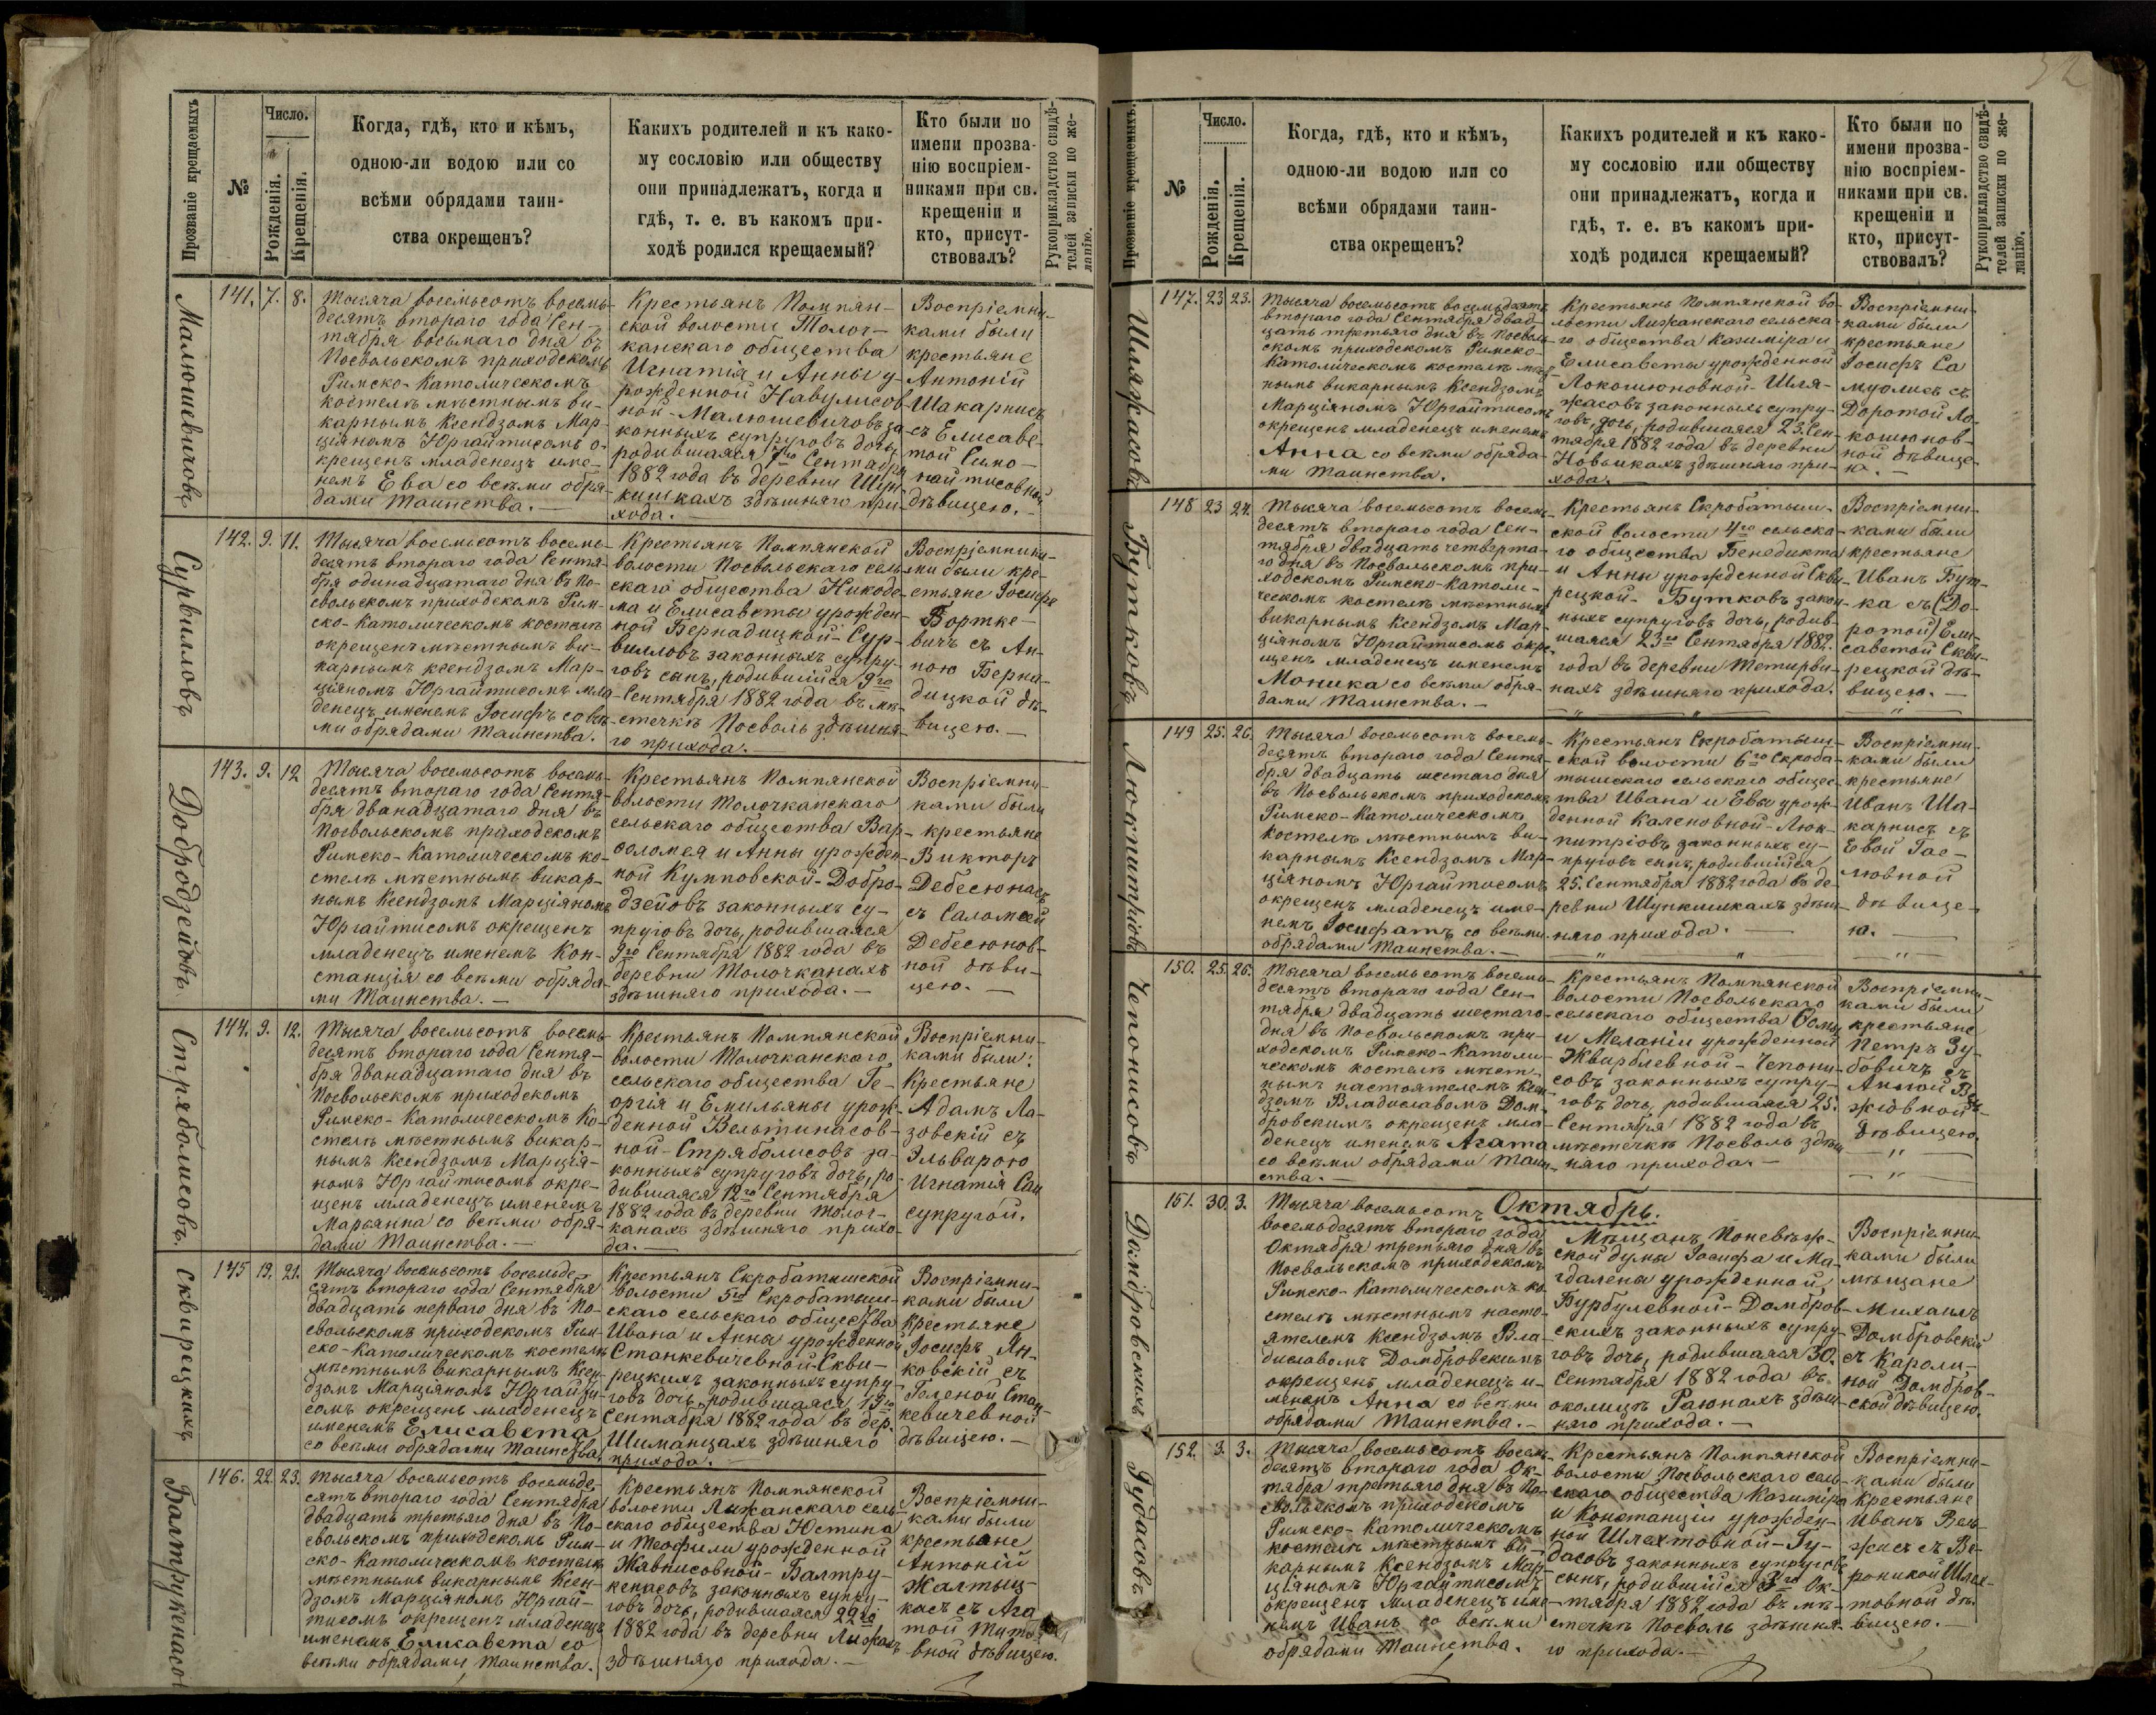 Прозваніе крещаемыхъ
№
Число.
Рожденія.
Крещенія.
Когда, гдѣ, кто и кѣмъ,
одною-ли водою или со
всѣми обрядами таин-
ства окрещенъ?
Какихъ родителей и къ како-
му сословію или обществу
они принадлежатъ, когда и
гдѣ, т. е. въ какомъ при-
ходѣ родился крещаемый?
Кто были по
имени прозва-
нію воспріем-
никами при св.
крещеніи и
кто, присут-
ствовалъ?
Рукоприкладство свидѣ-
телей записки по же-
ланію.
Малюшевичовъ
141. 7. 8.
Тысяча восемьсотъ восемь-
десятъ втораго года Сен-
тября восьмаго дня въ
Посвольскомъ приходскомъ
Римско-Католическомъ
костелѣ мѣстнымъ ви-
карнымъ Ксендзомъ Мар-
ціяномъ Юргайтисомъ о-
крещенъ младенецъ име-
немъ Ева со всѣми обря-
дами Таинства.
Крестьянъ Помпян-
ской волости Толоч-
канскаго общества
Игнатія и Анны у-
рожденной Навулисов-
ной-Малюшевичовъ за-
конныхъ супруговъ дочь,
родившаяся 7го Сентября
1882 года въ деревни Шун-
кишкахъ здѣшняго при-
хода.
Воспріемни-
ками были
крестьяне
Антоній
Шакарнисъ
съ Елисаве-
той Симо-
найтисовной
дѣвицею.
Сурвилловъ
142. 9. 11.
Тысяча восемьсотъ восемь-
десятъ втораго года Сентя-
бря одинадцатаго дня въ По-
свольскомъ приходскомъ Рим-
ско-Католическомъ костелѣ
окрещенъ мѣстнымъ ви-
карнымъ ксендзомъ Мар-
ціяномъ Юргайтисомъ мла-
денецъ именемъ Іосифъ со всѣ-
ми обрядами Таинства.
Крестьянъ Помпянской
волости Посвольскаго сель-
скаго общества Никоде-
ма и Елисаветы урожден-
ной Бернадицкой-Сур-
вилловъ законныхъ супру-
говъ сынъ, родившійся 9го
Сентября 1882 года въ мѣ-
стечкѣ Посволь здѣшня-
го прихода.
Воспріемника-
ми были кре-
стьяне Іосифъ
Бортке-
вичъ съ Ан-
ною Берна-
дицкой дѣ-
вицею.
Добродзейовъ
143. 9. 12
Тысяча восемьсотъ восемь-
десятъ втораго года Сентя-
бря дванадцатаго дня въ
Посвольскомъ приходскомъ
Римско-Католическомъ ко-
стелѣ мѣстнымъ викар-
нымъ Ксендзомъ Марціяномъ
Юргайтисомъ окрещенъ
младенецъ именемъ Кон-
станція со всѣми обряда-
ми Таинства.
Крестьянъ Помпянской
волости Толочканскаго
сельскаго общества Вар-
ѳоломея и Анны урожден-
ной Кумповской-Добро-
дзейовъ законныхъ су-
пруговъ дочь, родившаяся
9го Сентября 1882 года въ
деревни Толочканахъ
здѣшняго прихода.
Воспріемни-
ками были
крестьяне
Викторъ
Дебесюнасъ
съ Саломеей
Дебесюнов-
ной дѣви-
цею.
Стряболисовъ.
144. 9. 12.
Тысяча восемьсотъ восемь-
десятъ втораго года Сентя-
бря дванадцатаго дня въ
Посвольскомъ приходскомъ
Римско-Католическомъ Ко-
стелѣ мѣстнымъ викар-
нымъ Ксендзомъ Марція-
номъ Юргайтисомъ окре-
щенъ младенецъ именемъ
Марьянна со всѣми обря-
дами Таинства.
Крестьянъ Помпянской
волости Толочканскаго
сельскаго общества Ге-
оргія и Емильяны урож-
денной Вельтинасов-
ной-Стряболисовъ за-
конныхъ супруговъ дочь, ро-
дившаяся 12го Сентября
1882 года въ деревни Толоч-
канахъ здѣшняго прихо-
да.
Воспріемни-
ками были:
Крестьяне
Адамъ Ла-
зовскій съ
Эльварою
Игнатія Сан
супругой.
Сквирецкихъ
145 19. 21.
Тысяча восемьсотъ восемьде-
сятъ втораго года Сентября
двадцать перваго дня въ По-
свольскомъ приходскомъ Рим-
ско-Католическомъ костелѣ
мѣстнымъ викарнымъ Ксен-
дзомъ Марціяномъ Юргайти-
сомъ окрещенъ младенецъ
именемъ Елисавета
со всѣми обрядами Таинства,
Крестьянъ Скробатышской
волости 5го Скробатыш-
скаго сельскаго общества
Ивана и Анны урожденной
Станкевичевной-Скви-
рецкихъ законныхъ супру-
говъ дочь, родившаяся 19го
Сентября 1882 года въ дер.
Шиманцахъ здѣшняго
прихода.
Воспріемни-
ками были
Крестьяне
Іосифъ Ян-
ковскій съ
Геленой Стан-
кевичевной
дѣвицею.
Балтрукенасовъ
146. 22. 23.
Тысяча восемьсотъ восемьде-
сятъ втораго года Сентября
двадцать третьяго дня въ По-
свольскомъ приходскомъ Рим-
ско-Католическомъ костелѣ
мѣстнымъ викарнымъ Ксен-
дзомъ Марціяномъ Юргай-
тисомъ окрещенъ младенецъ
именемъ Елисавета со
всѣми обрядами Таинства.
Крестьянъ Помпянской
волости Лижанскаго сель-
скаго общества Юстина
и Теофили урожденной
Жавнисовной-Балтру-
кенасовъ законныхъ супру-
говъ дочь, родившаяся 22го
1882 года въ деревни Лижахъ
здѣшняго прихода.
Воспріемни-
ками были
крестьяне
Антоній
Жалтыц-
касъ съ Ага
той
вной дѣвицею.
Прозваніе крещаемыхъ.
№
Число.
Рожденія.
Крещенія.
Когда, гдѣ, кто и кѣмъ,
одною-ли водою или со
всѣми обрядами таин-
ства окрещенъ?
Какихъ родителей и къ како-
му сословію или обществу
они принадлежатъ, когда и
гдѣ, т. е. въ какомъ при-
ходѣ родился крещаемый?
Кто были по
имени прозва-
нію воспріем-
никами при св.
крещеніи и
кто, присут-
ствовалъ?
Рукоприкладство свидѣ-
телей записки по же-
ланію.
Шляжасовъ
147. 23 23.
Тысяча восемьсотъ восемьдесятъ
втораго года Сентября двад-
цать третьяго дня въ Посволь-
скомъ приходскомъ Римско-
Католическомъ костелѣ мѣст-
нымъ викарнымъ Ксендзомъ
Марціяномъ Юргайтисомъ
окрещенъ младенецъ именемъ
Анна со всѣми обряда-
ми Таинства.
Крестьянъ Помпянской во-
лости Лижанскаго сельска-
го общества Казиміра и
Елисаветы урожденной
Локошюновной-Шля-
жасовъ законныхъ супру-
говъ, дочь, родившаяся 23. Сен-
тября 1882 года въ деревни
Новыкахъ здѣшняго при-
хода.
Воспріемни-
ками были
крестьяне
Іосифъ Са
муолисъ съ
Доротой Ло-
кошюнов-
ной дѣвице-
ю.
Бутковъ
148 23 24.
Тысяча восемьсотъ восемь-
десятъ втораго года Сен-
тября двадцать четверта-
го дня въ Посвольскомъ при-
ходскомъ Римско-Католи-
ческомъ костелѣ мѣстнымъ
викарнымъ Ксендзомъ Мар-
ціяномъ Юргайтисомъ окре-
щенъ младенецъ именемъ
Моника со всѣми обря-
дами Таинства.
Крестьянъ Скробатыш-
ской волости 4го сельска-
го общества Бенедикта
и Анны урожденной Скви-
рецкой-Бутковъ закон-
ныхъ супруговъ дочь, родив-
шаяся 23го Сентября 1882.
года въ деревни Тетирви-
нахъ здѣшняго прихода.
Воспріемни-
ками были
крестьяне
Иванъ Бут-
ка съ (До-
ротой) Ели-
саветой Скви-
рецкой дѣ-
вицею.
Люкпитріовъ
149 25. 26.
Тысяча восемьсотъ восемь-
десятъ втораго года Сентя-
бря двадцать шестаго дня
въ Посвольскомъ приходскомъ
Римско-Католическомъ
костелѣ мѣстнымъ ви-
карнымъ Ксендзомъ Мар-
ціяномъ Юргайтисомъ
окрещенъ младенецъ име-
немъ Іосифатъ со всѣми
обрядами Таинства.
Крестьянъ Скробатыш-
ской волости 6го Скроба-
тышскаго сельскаго общес-
тва Ивана и Евы урож-
денной Каленовной-Люк-
питріовъ законныхъ су-
пруговъ сынъ, родившійся
25. Сентября 1882 года въ де-
ревни Шункишкахъ здѣш-
няго прихода.
Воспріемни-
ками были
крестьяне
Иванъ Ша-
карнисъ съ
Евой Гас-
любной
дѣвице-
ю.
Чепонисовъ
150. 25. 26.
Тысяча восемьсотъ восемь-
десятъ втораго года Сен-
тября двадцать шестаго
дня въ Посвольскомъ при-
ходскомъ Римско-Католи-
ческомъ костелѣ мѣст-
нымъ настоятелемъ Ксен-
дзомъ Владиславомъ Дом-
бровскимъ окрещенъ мла-
денецъ именемъ Агата
со всѣми обрядами Таин-
ства.
Крестьянъ Помпянской
волости Посвольскаго
сельскаго общества Осипа
и Меланіи урожденной
Жварблевной-Чепони-
совъ законныхъ супру-
говъ дочь, родившаяся 25.
Сентября 1882 года въ
мѣстечкѣ Посволь здѣш-
няго прихода.
Воспріемни-
ками были
крестьяне
Петръ Зу-
бовичъ съ
Анной
жіовной
дѣвицею.
Октябрь.
Домбровскихъ
151. 30. 3.
Тысяча восемьсотъ
восемьдесятъ втораго года
Октября третьяго дня въ
Посвольскомъ приходскомъ
Римско-Католическомъ ко-
стелѣ мѣстнымъ насто-
ятелемъ Ксендзомъ Вла-
диславомъ Домбровскимъ
окрещенъ младенецъ и-
менемъ Анна со всѣми
обрядами Таинства.
Мѣщанъ Поневѣж-
ской думы Іосифа и Ма-
гдалены урожденной
Бурбулевной-Домбров-
скихъ законныхъ супру-
говъ дочь, родившаяся 30.
Сентября 1882 года въ
околицѣ Раюнахъ здѣш-
няго прихода.
Воспріемни-
ками были
мѣщане
Михаилъ
Домбровскій
съ Кароли-
ной Домбров-
ской дѣвицею.
Гудасовъ
152. 3. 3.
Тысяча восемьсотъ восемь-
десятъ втораго года Ок-
тября третьяго дня въ По-
свольскомъ приходскомъ
Римско-Католическомъ
костелѣ мѣстнымъ ви-
карнымъ Ксендзомъ Мар-
ціяномъ Юргайтисомъ
окрещенъ младенецъ име-
немъ Иванъ со всѣми
обрядами Таинства.
Крестьянъ Помпянской
волости Посвольскаго сель-
скаго общества Казиміра
и Констанціи урожден-
ной Шлехтовной-Гу-
дасовъ законныхъ супруговъ
сынъ, родившійся 3го Ок-
тября 1882 года въ мѣ-
стечкѣ Посволь здѣшня-
го прихода.
Воспріемни-
ками были
крестьяне
Иванъ Вель-
жисъ съ Ве-
роникой Шлех-
товной дѣ-
вицею.